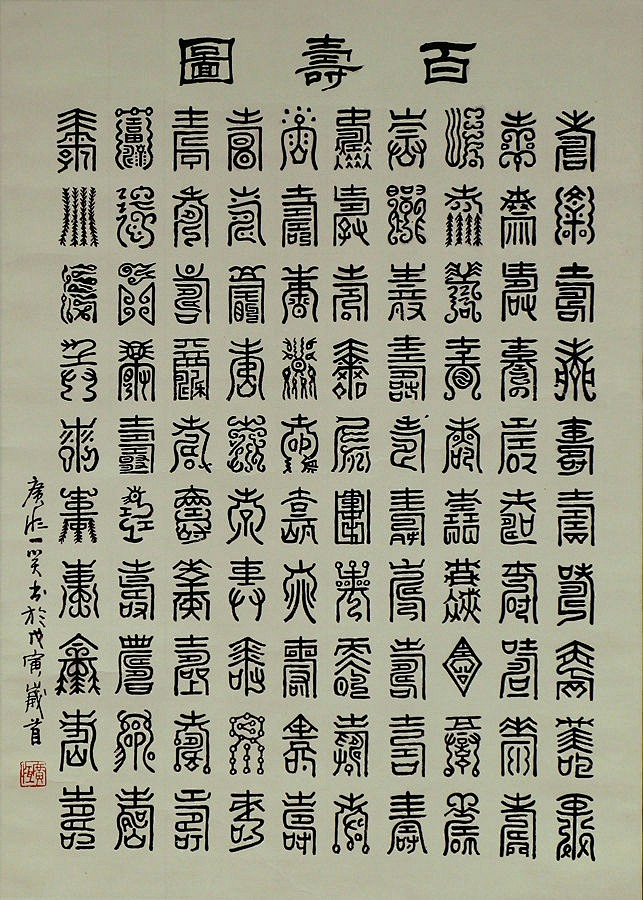 百壽圖
壽壽壽壽壽壽壽壽壽壽
壽壽壽壽壽壽壽壽壽壽
壽壽壽壽壽壽壽壽壽壽
壽壽壽壽壽壽壽壽壽壽
壽壽壽壽壽壽壽壽壽壽
壽壽壽壽壽壽壽壽壽壽
壽壽壽壽壽壽壽壽壽壽
壽壽壽壽壽壽壽壽壽壽
壽壽壽壽壽壽壽壽壽壽
壽壽壽壽壽壽壽壽壽壽
廣恆一笑書於戊寅歲首
廣恆